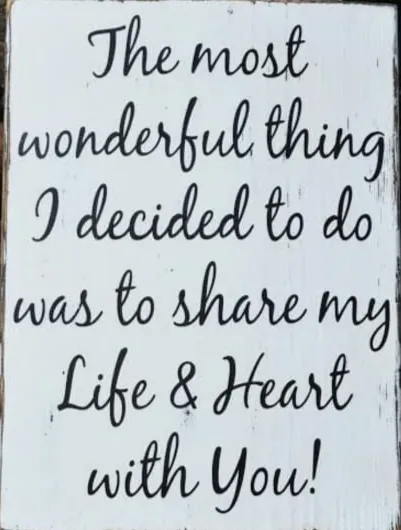 The most
wonderful thing
I decided to do
was to share my
Life & Heart
with You!